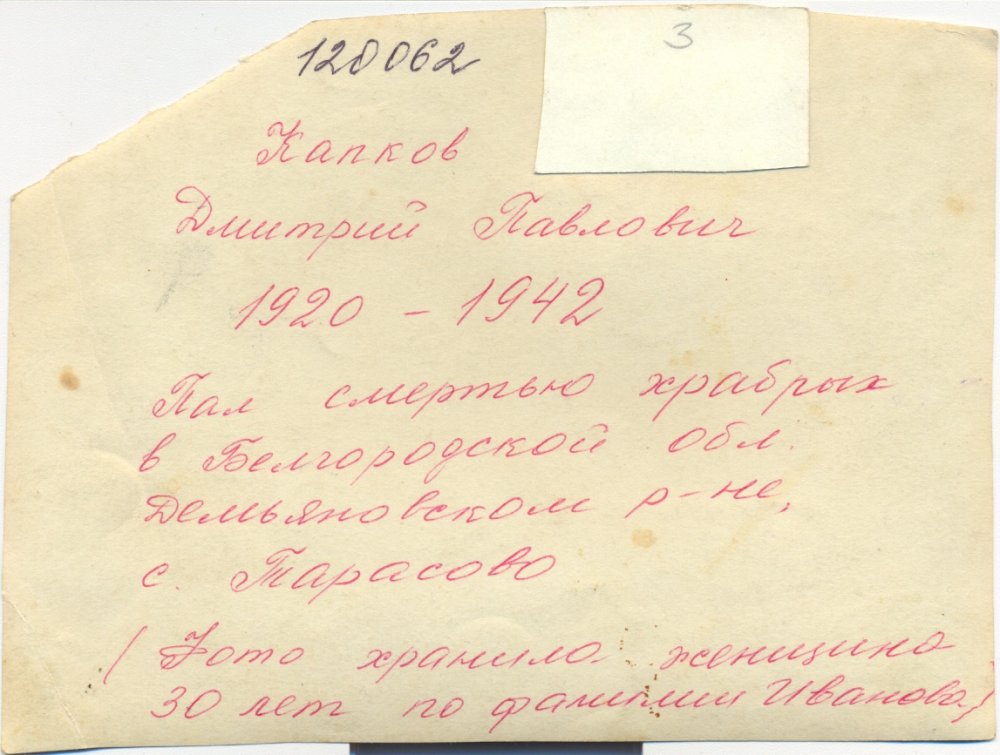 120062
3
Капков
Дмитрий Павлович
1920 - 1942
Пал смертью храбрых
в Белгородской обл.
Демьяновском р-не,
с. Тарасово
(Фото хранила женщина
30 лет по фамилии Иванова)